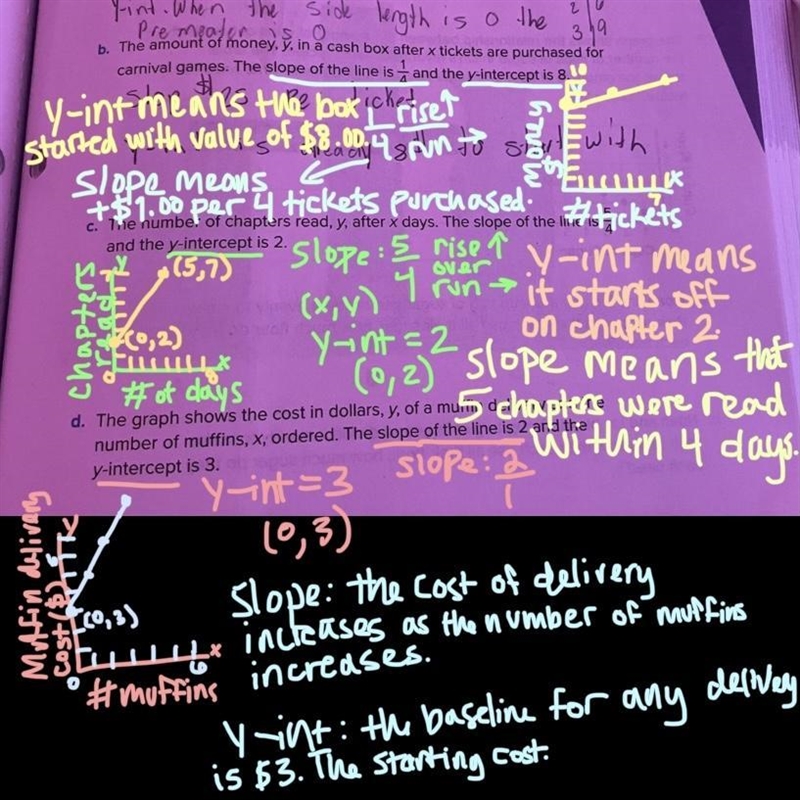 y-int. When the side length is 0 the
Pre meator is 0
3 | 9
b. The amount of money, y, in a cash box after x tickets are purchased for
carnival games. The slope of the line is 1/4 and the y-intercept is 8.
Y-int means the box
started with value of $8.00.
1 rise↑
4 run →
Slope means
+$1.00 per 4 tickets purchased.
money
x
# tickets
c. The number of chapters read, y, after x days. The slope of the line is 5/4
and the y-intercept is 2.
chapters
read
Y
(5,7)
(0,2)
0
x
# of days
Slope: 5 rise ↑
over
4 run →
(x,y)
y-int = 2
(0,2)
Y-int means
it starts off
on chapter 2.
slope means that
5 chapters were read
within 4 days.
d. The graph shows the cost in dollars, y, of a muffin
number of muffins, x, ordered. The slope of the line is 2 and the
y-intercept is 3.
slope: 2
1
y-int = 3
(0,3)
Muffin delivery
cost ($)
(0,3)
0
6
x
# muffins
Slope: the cost of delivery
increases as the number of muffins
increases.
Y-int: the baseline for any delivey
is $3. The starting cost.